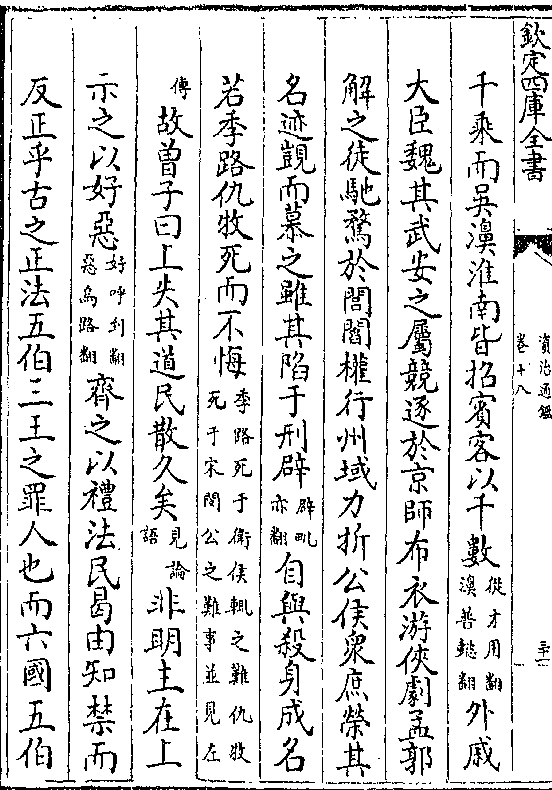 欽定四庫全書
資治通鑑
卷十八
三十一
千乘而吳濞淮南皆招賓客以千數從才用翻濞普懿翻外戚
大臣魏其武安之屬競逐於京師布衣游俠劇孟郭
解之徒馳騖於閭閻權行州域力折公侯衆庶榮其
名迹覬而慕之雖其陷于刑辟辟毗亦翻自與殺身成名
若季路仇牧死而不悔季路死于衛侯輒之難仇牧死于宋閔公之難事並見左
傳故曾子曰上失其道民散久矣見論語非明主在上
示之以好惡好呼到翻惡烏路翻齊之以禮法民曷由知禁而
反正乎古之正法五伯三王之罪人也而六國五伯